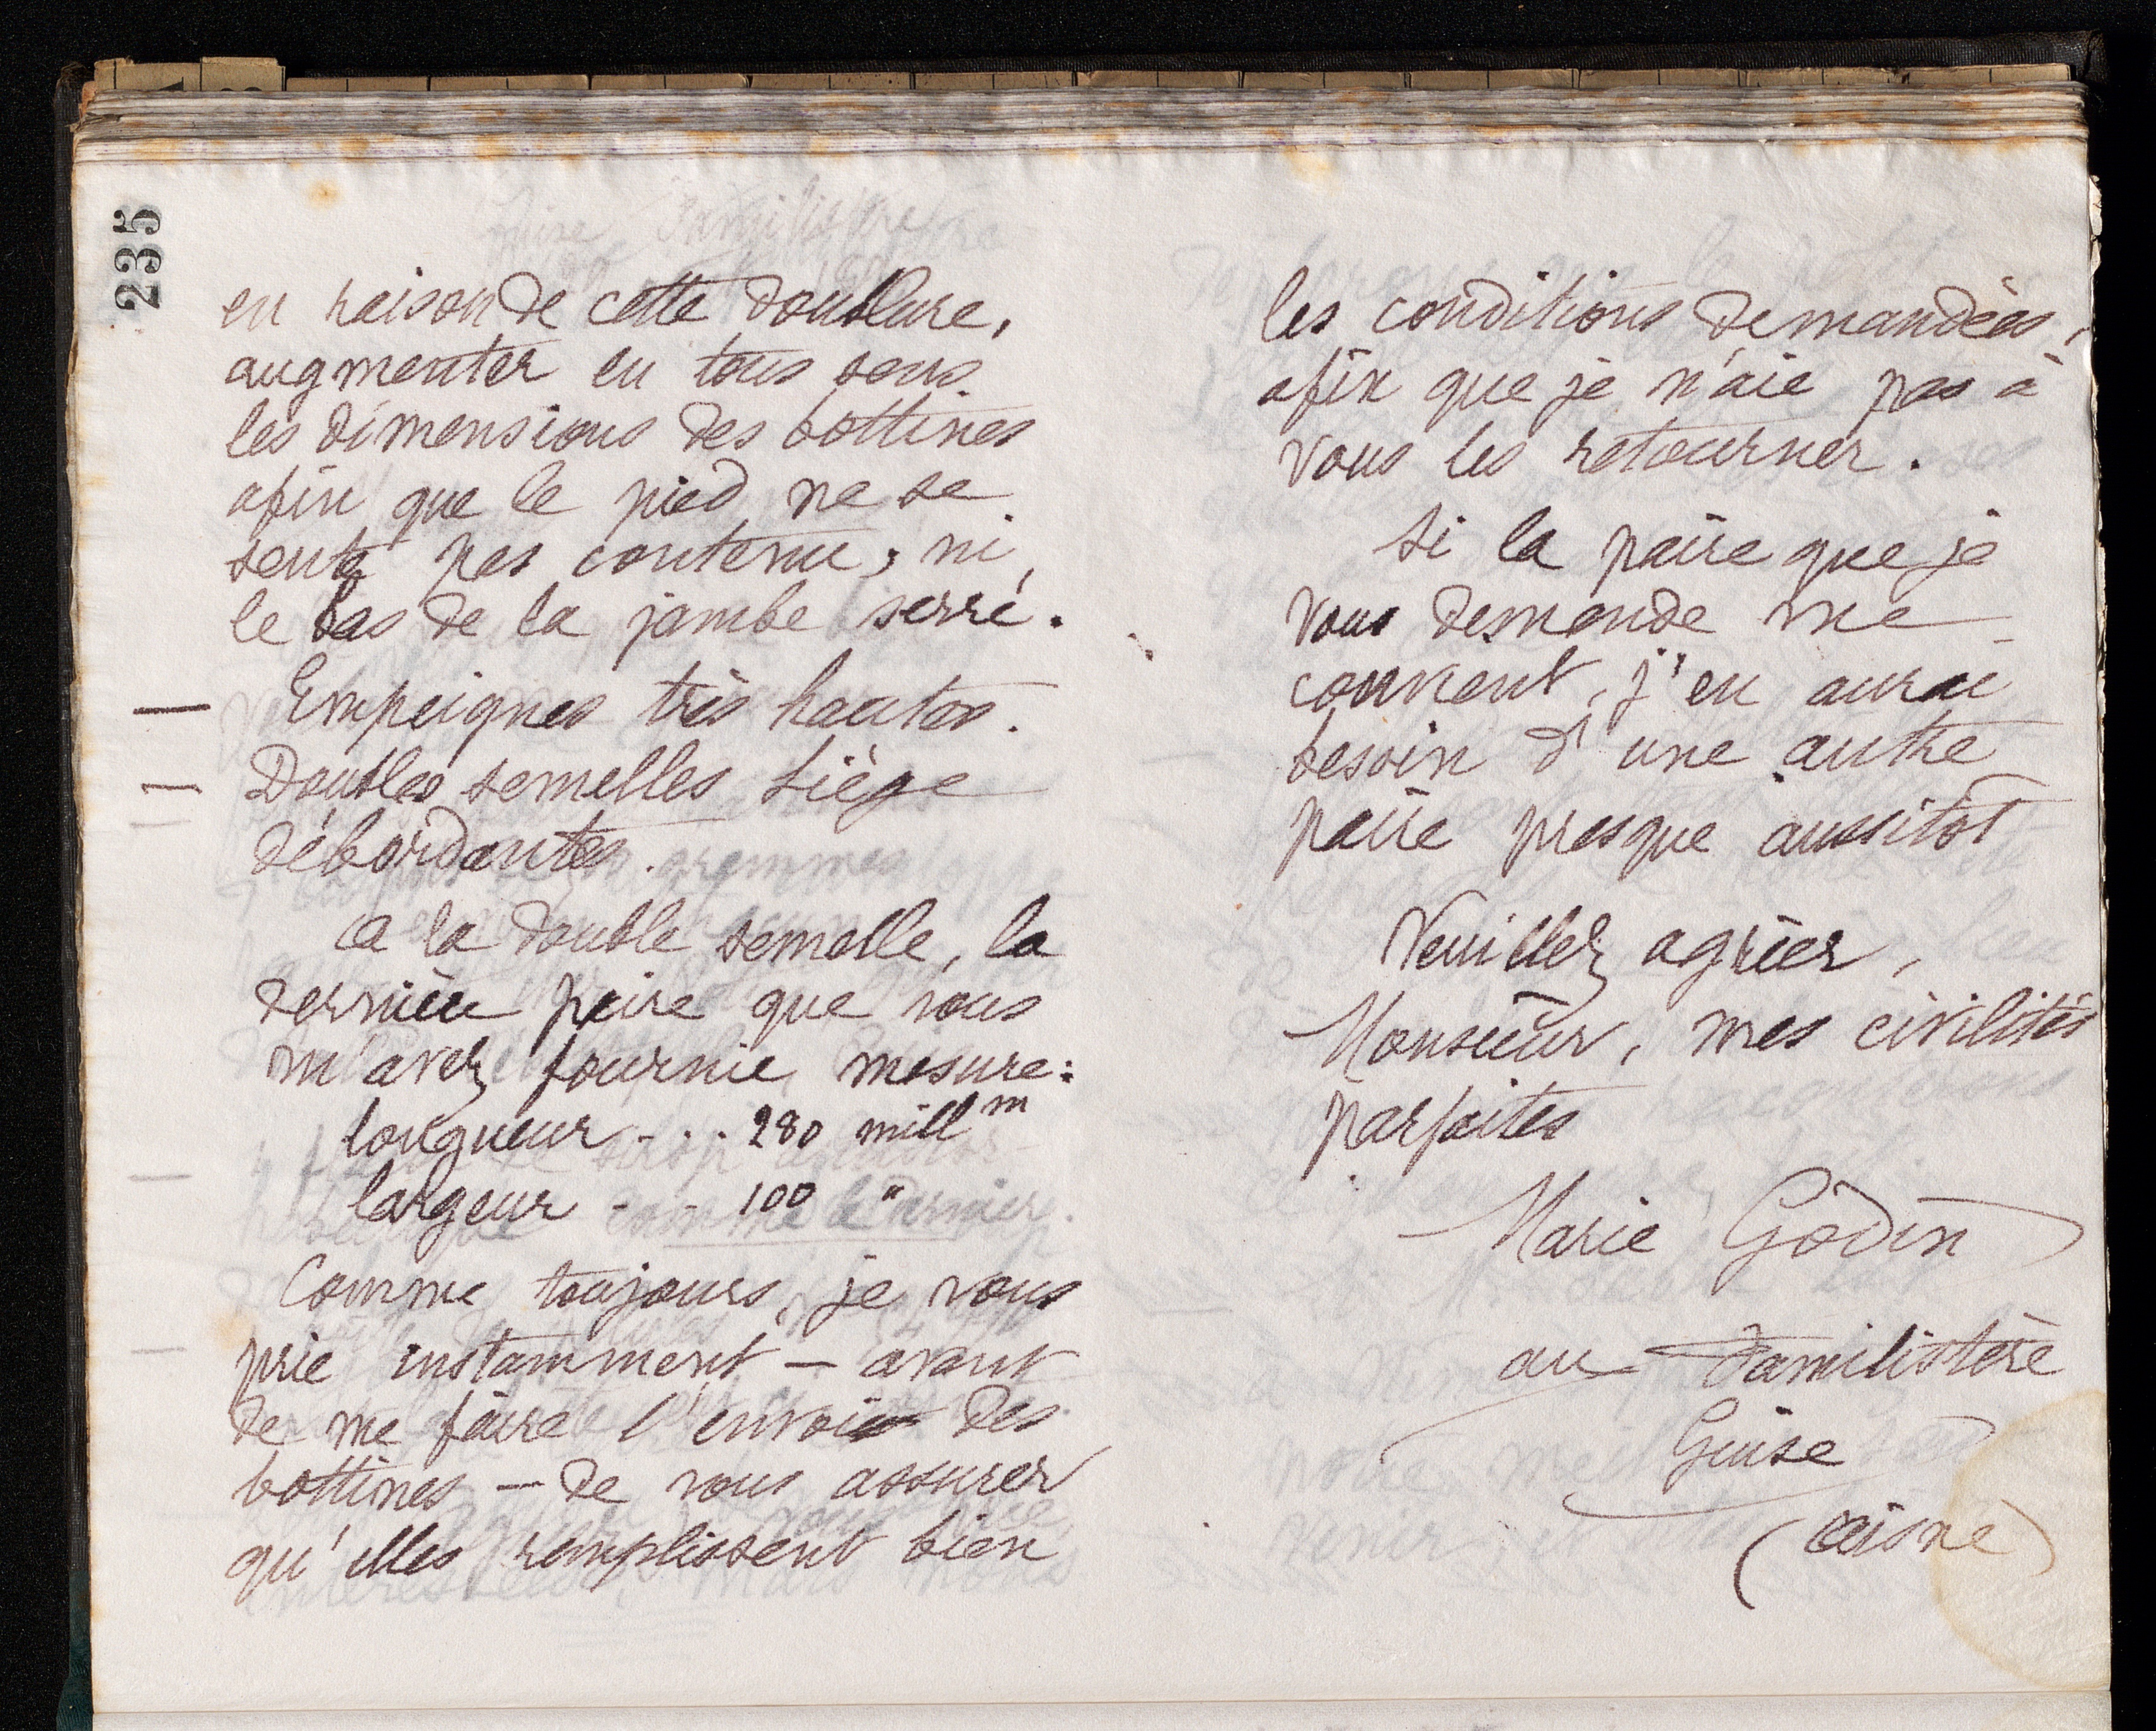 235
en raison de cette doublure,
augmenter en tous sens
les dimensions des bottines
afin que le pied ne se
sente pas contenu, ni
le bas de la jambe serré.
Empeignes très hautes.
Doubles semelles liège
débordantes.
A la double semelle, la
dernière paire que vous
m'avez fournie, mesure:
longueur - . . 280 mill^m
largeur - - 100 "
Comme toujours, je vous
prie instamment - avant
de me faire l'envoi des
bottines - de vous assurer
qu'elles remplissent bien
les conditions demandées,
afin que je n'aie pas à
vous les retourner.
Si la paire que je
vous demande me
convient, j'en aurai
besoin d'une autre
paire presque aussitôt
Veuillez agréer,
Monsieur, mes civilités
parfaites
Marie Godin
au Familistère
Guise
(Aisne)